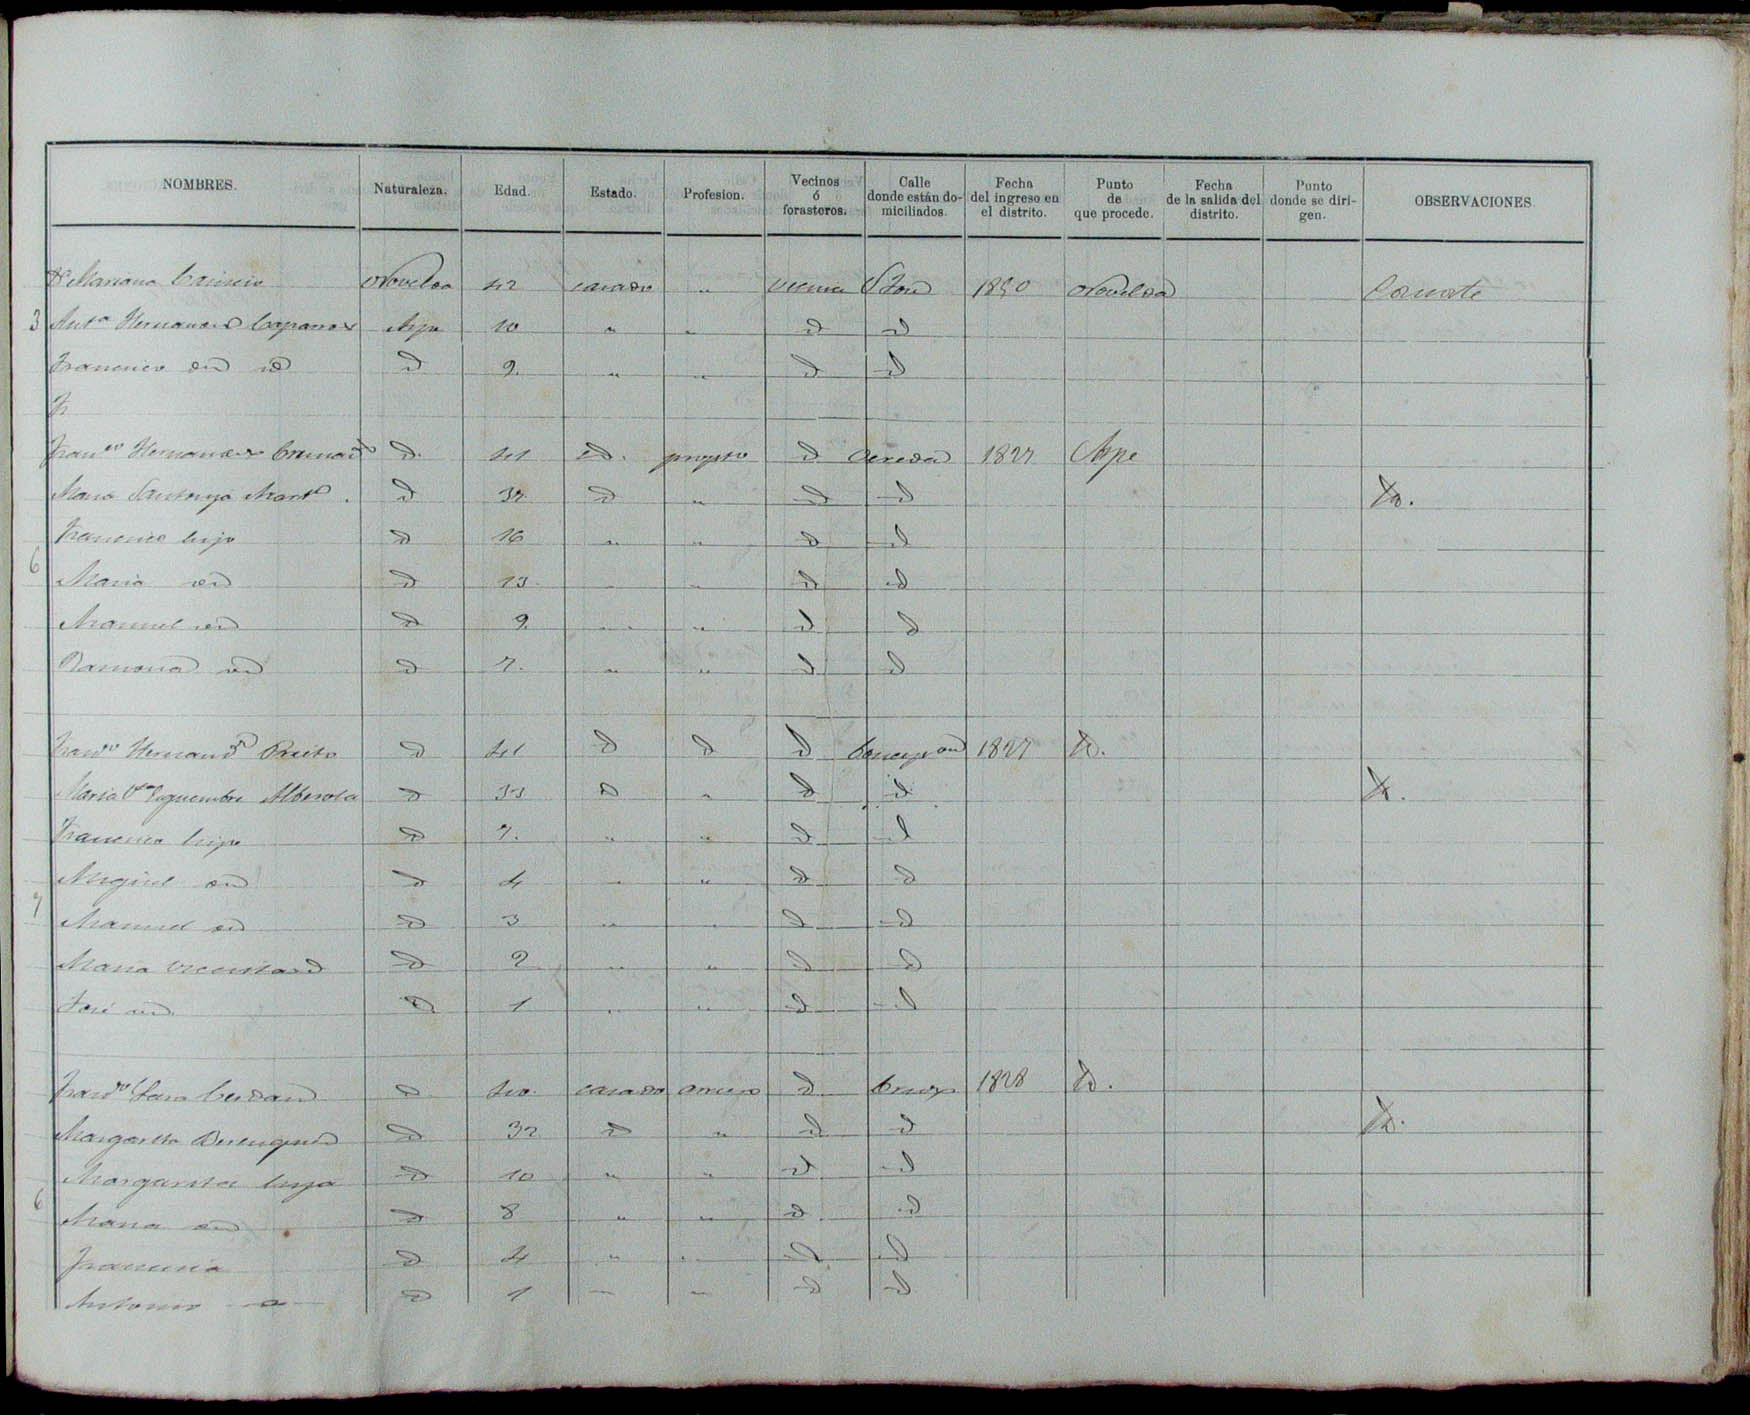 NOMBRES. Naturaleza. Edad. Estado. Profesion. Vecinos ó forasteros. Calle donde están domiciliados. Fecha del ingreso en el distrito. Punto de que procede. Fecha de la salida del distrito. Punto donde se dirigen. OBSERVACIONES.
Mariana Novelda 42 casado " 1850 Novelda Consorte
3 Antª Aspe 10 " " id id
Francisco id id id 9 " " id id
Fr
Franco Hernandez id 41 id. id 1827 Aspe
Maria Santonja Martz. id 32 id " id id id.
Francisco hijo id 16 " " id id
6
Maria id id 13 " " id id
Manuel id id 9 " " id id
Ramona id id 7. " " id id
Franco Hernandz Prieto id 41 id id id Concepcion 1827 id.
Maria Alberola id 33 id " id id id.
Francisco hijo id 7. " " id id
Miguel id id 4 " " id id
7
Manuel id id 3 " " id id
Maria Vicenta id id 2 " " id id
José id. id 1 " " id id
Franco id 40 casado id 1828 id.
Margarita id 32 id " id id id.
Margarita hija id 10 " " id id
6
Maria id id 8 " " id id
Francisca id 4 " " id id
Antonio id 1 " " id id